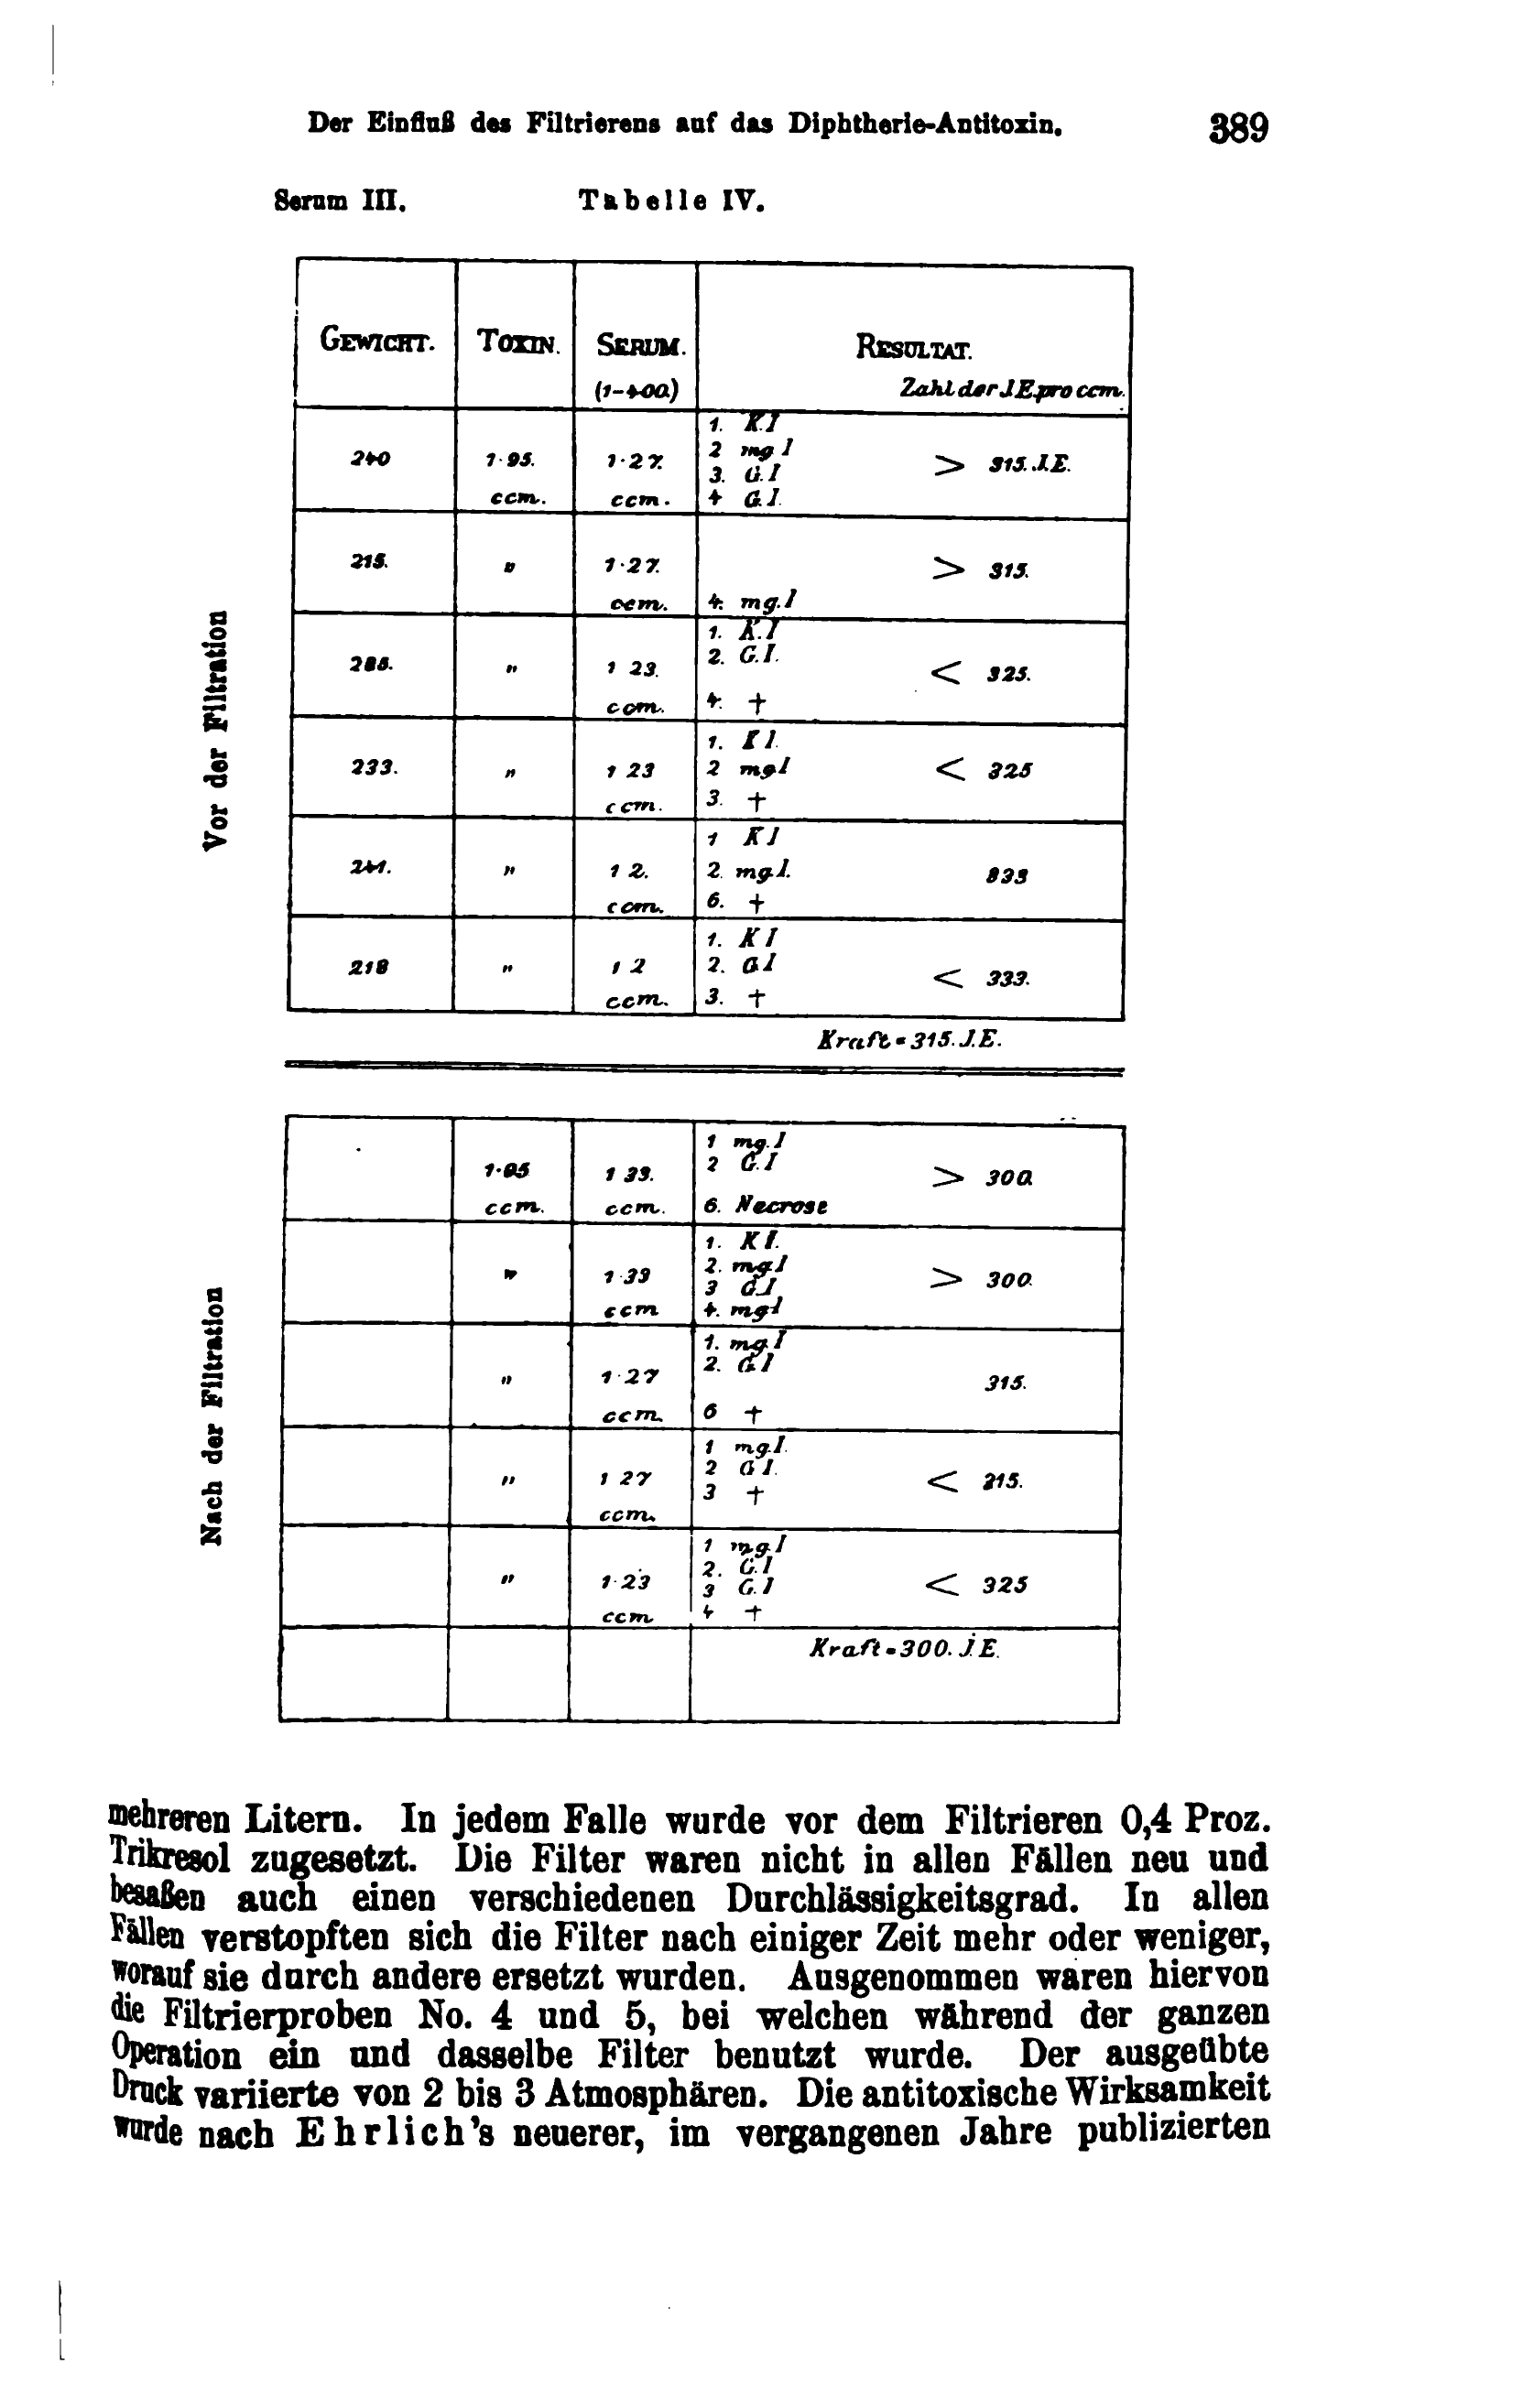 Der Einfluß des Filtrierens auf das Diphtherie-Antitoxin. 389
Serum III. Tabelle IV.
GEWICHT. TOXIN. SERUM. RESULTAT.
(1-400) Zahl der I.E. pro ccm.
Vor der Filtration
1. K.I
240 1·95. 1·27. 2 mg I > 315. I.E.
3. G.I
ccm. ccm. 4 G.I.
215. " 1·27. > 315.
ccm. 4. mg.I
1. K.I
2. G.I.
285. " 1 23. < 325.
ccm. 4. †
1. K I.
233. " 1 23 2 mgI < 325
ccm. 3. †
1 K I
241. " 1 2. 2. mgI. 333
ccm. 6. †
1. K I
218 " 1 2 2. G I < 333.
ccm. 3. †
Kraft = 315. I.E.
Nach der Filtration
1 mg.I
1·95 1 33. 2 G.I > 300.
ccm. ccm. 6. Necrose
1. K I.
" 1·33 2. mgI > 300.
3 G.I
ccm 4. mgI
1. mg.I
2. G I
" 1·27 315.
ccm. 6 †
1 mg.I.
2 G I.
" 1 27 3 † < 315.
ccm.
1 mg.I
2. G.I
" 1·23 3 G.I < 325
ccm 4 †
Kraft = 300. I.E.
mehreren Litern. In jedem Falle wurde vor dem Filtrieren 0,4 Proz.
Trikresol zugesetzt. Die Filter waren nicht in allen Fällen neu und
besaßen auch einen verschiedenen Durchlässigkeitsgrad. In allen
Fällen verstopften sich die Filter nach einiger Zeit mehr oder weniger,
worauf sie durch andere ersetzt wurden. Ausgenommen waren hiervon
die Filtrierproben No. 4 und 5, bei welchen während der ganzen
Operation ein und dasselbe Filter benutzt wurde. Der ausgeübte
Druck variierte von 2 bis 3 Atmosphären. Die antitoxische Wirksamkeit
wurde nach Ehrlich's neuerer, im vergangenen Jahre publizierten